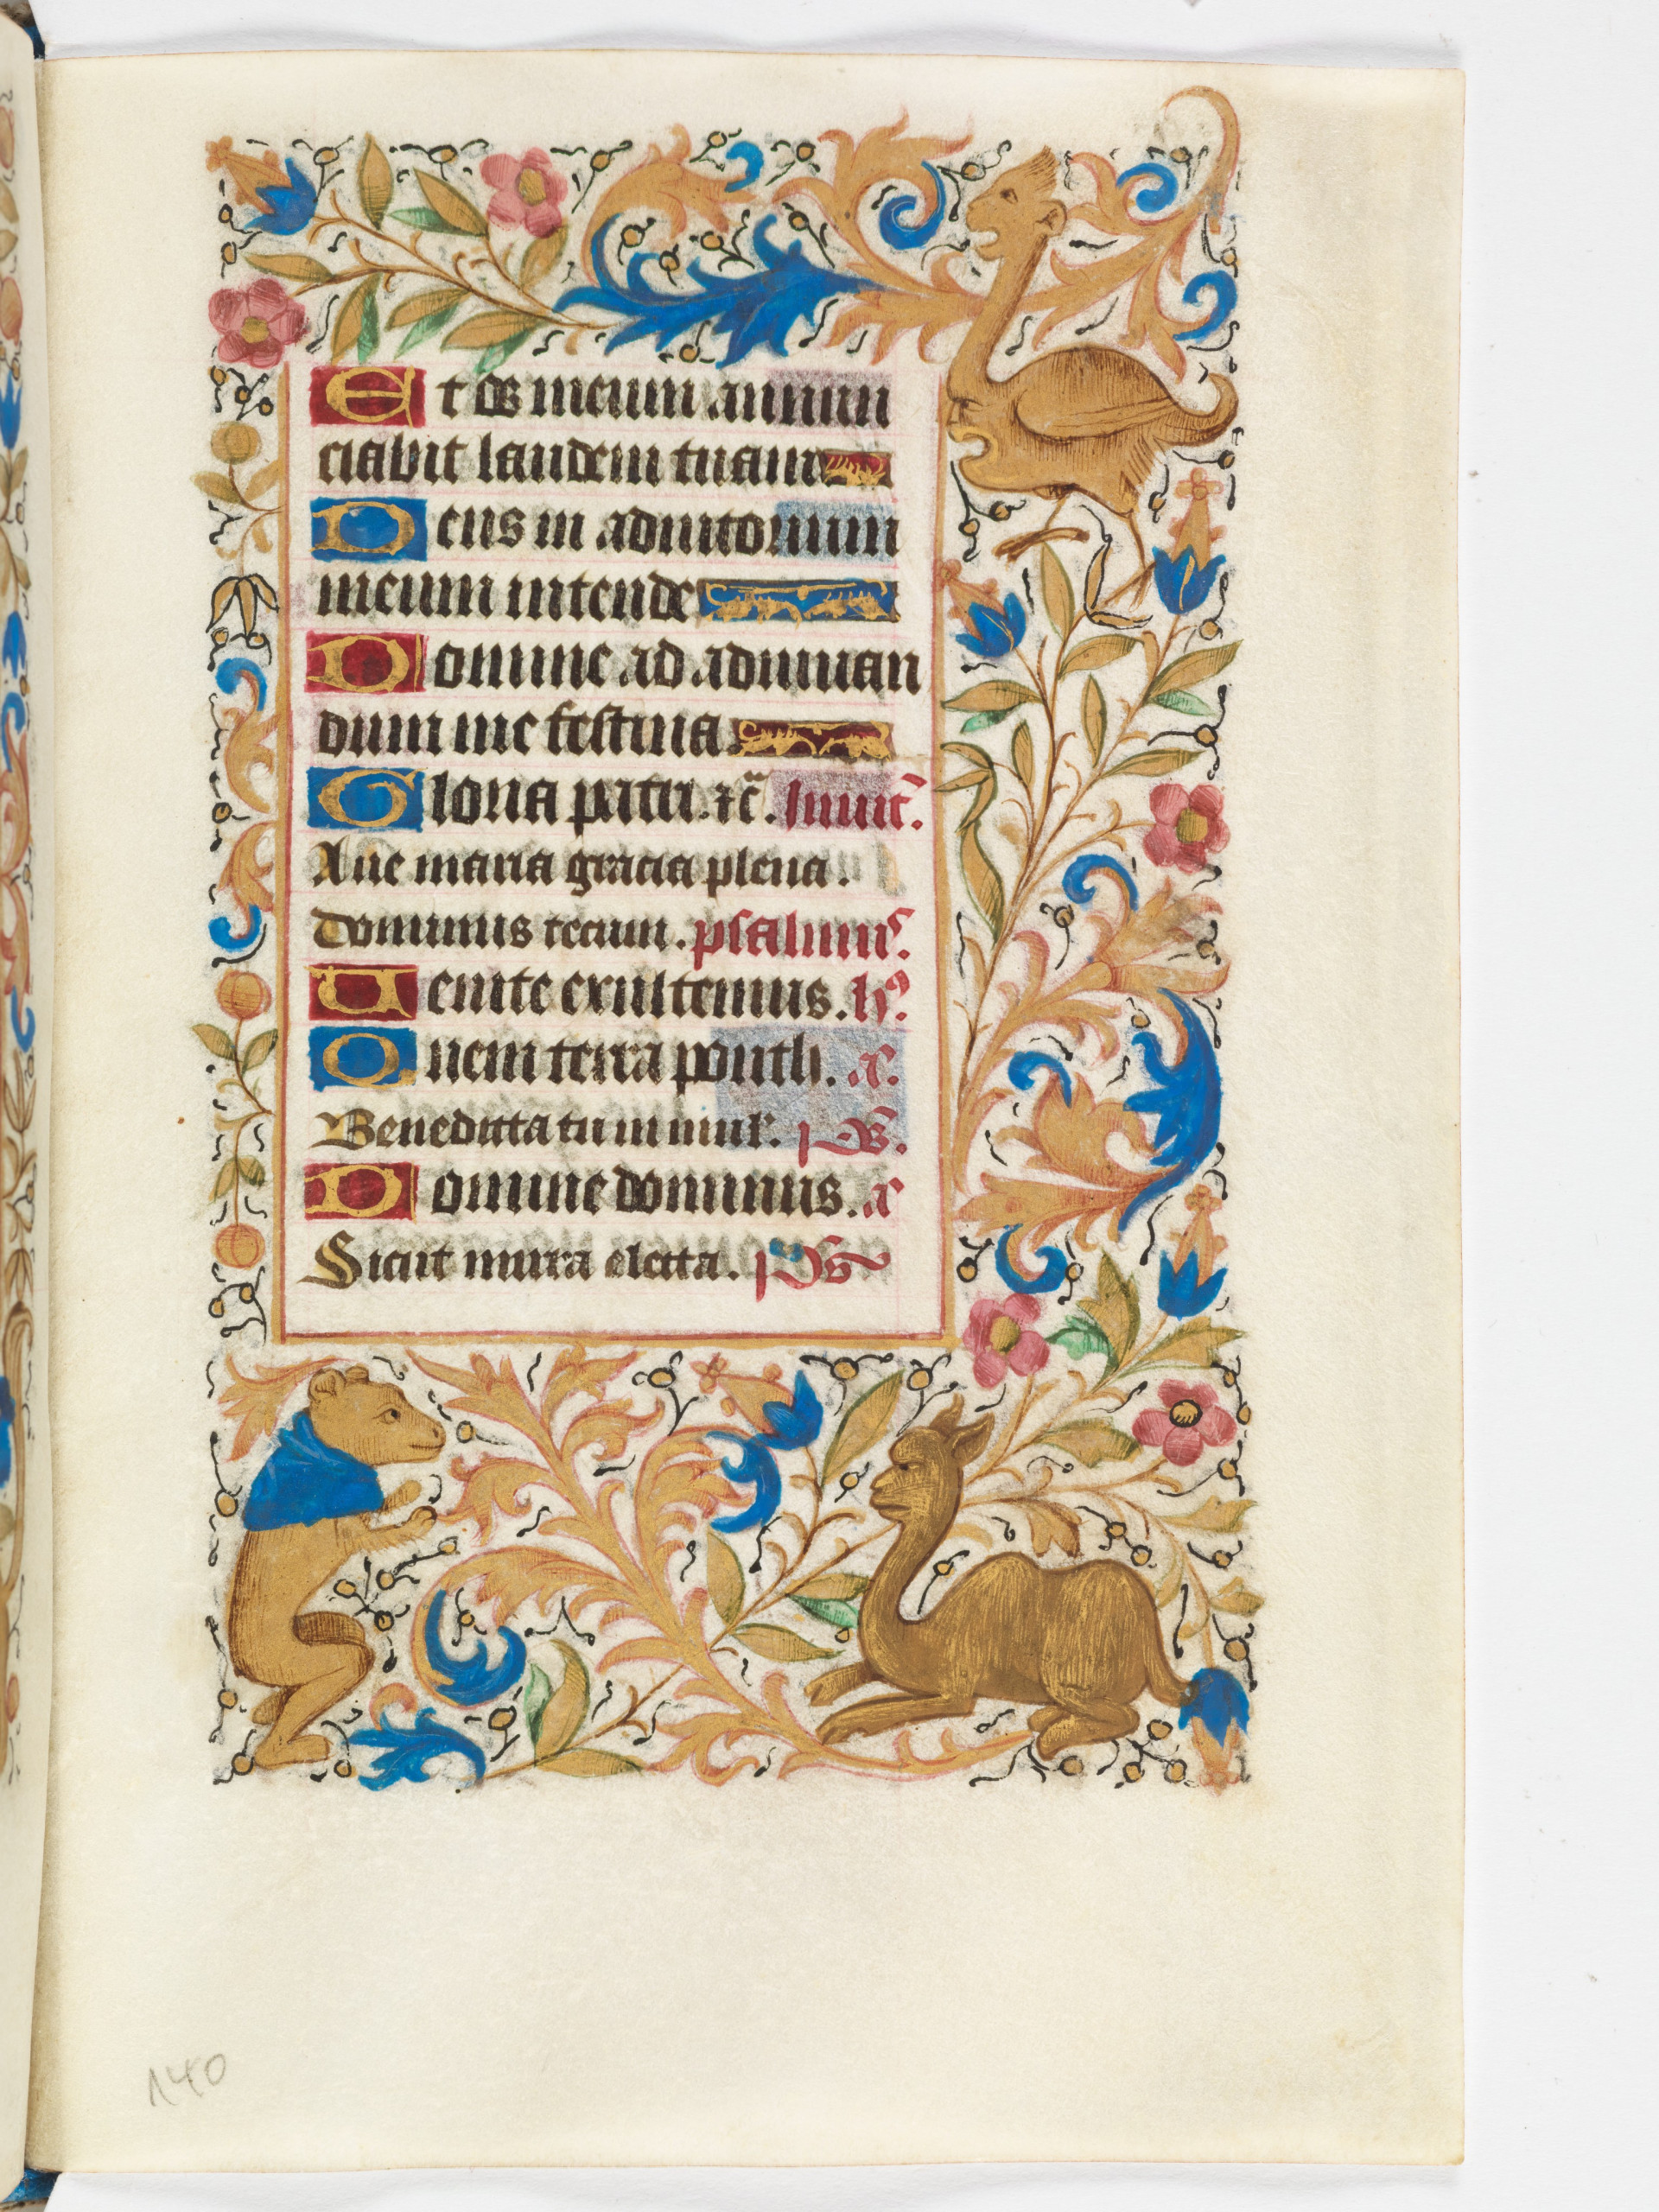 Et os meum annun
ciabit laudem tuam
Deus in adiutorium
meum intende
Domine ad adiuuan
dum me festina.
Gloria patri. ⁊c̄. Inuit̄.
Aue maria gracia plena.
Dominus tecum. psalmus.
Uenite exultemus. hꝰ.
Quem terra ponth. a.
Benedicta tu in mul'. ps.
Domine dominus. a
Sicut mirra electa. ps
140